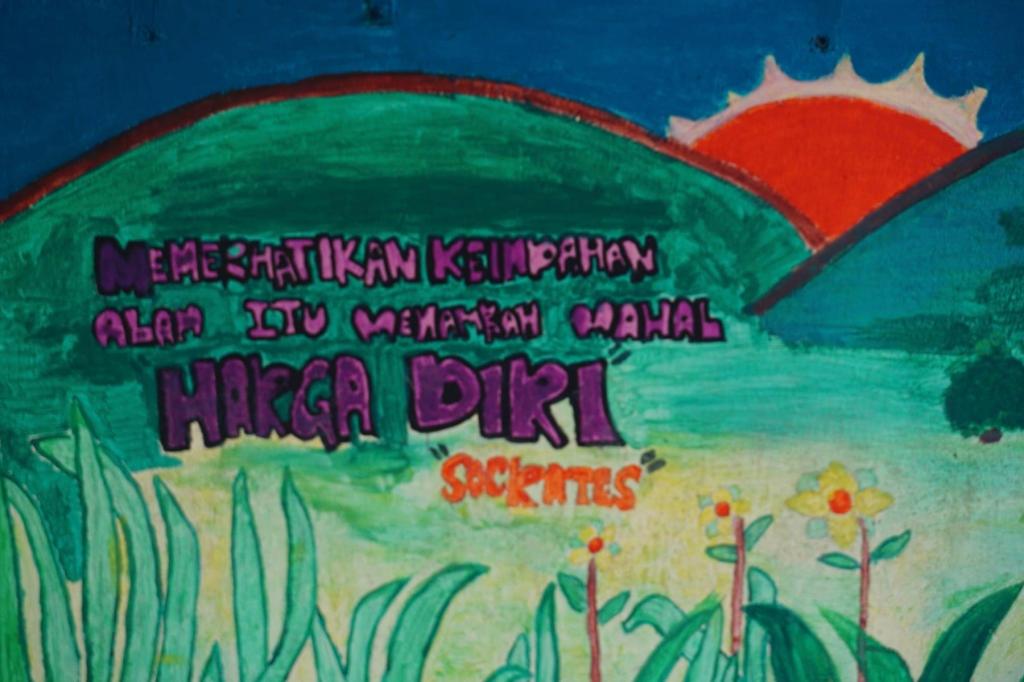 MEMERHATIKAN KEINDAHAN
ALAM ITU MENAMBAH MAHAL
HARGA DIRI"
"SOCRATES"